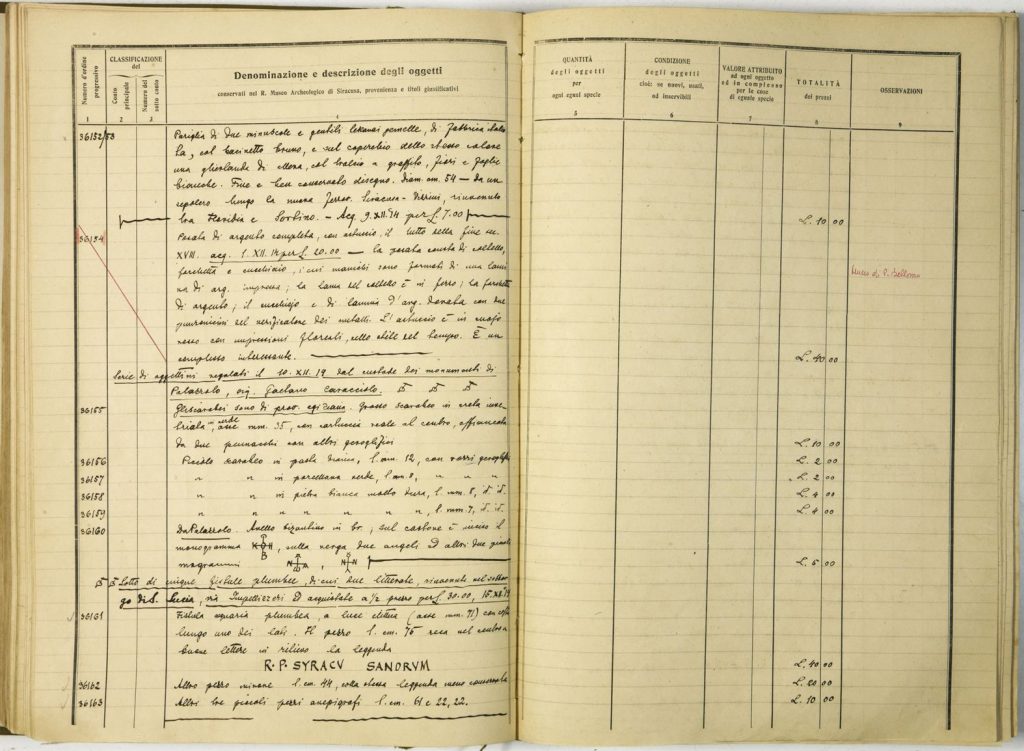 Numero d'ordine progressivo
CLASSIFICAZIONE del
Conto principale
Numero del sotto conto
Denominazione e descrizione degli oggetti
conservati nel R. Museo Archeologico di Siracusa, provenienza e titoli giustificativi
QUANTITÀ degli oggetti per ogni egual specie
CONDIZIONE degli oggetti cioè: se nuovi, usati, od inservibili
VALORE ATTRIBUITO ad ogni oggetto od in complesso per le cose di eguale specie
TOTALITÀ dei prezzi
OSSERVAZIONI
1 2 3 4 5 6 7 8 9
36152/53 Pariglia di due minuscole e gentili lekanai gemelle, di fabbrica
col bacinetto bruno, e sul coperchio dello stesso colore
una ghirlanda di col a graffito, fiori e foglie
bianche. Fine e ben conservato disegno. Diam. cm. 54 — da un
sepolcro lungo la nuova ferrov. Siracusa-Vizzini, rinvenuto
tra Floridia e Sortino. — Acq. 9.XII.14 per £ 7.00 L. 10 00
36154 Posata di argento completa, con astuccio, il tutto della fine sec.
XVIII. acq. 1. XII. 14 per £. 20.00 — la posata consta di coltello,
forchetta e cucchiaio, i cui manichi sono formati di una lami
na di arg. impressa; la lama del coltello è in ferro; la forchetta
di argento; il cucchiajo è di lamina d'arg. dorata con due
punzoncini del verificatore dei metalli. L'astuccio è in cuojo
rosso con impressioni floreali, nello stile del tempo. È un
complesso interessante. L. 40 00
Museo di P. Bellomo
Serie di oggettini regalati il 10.XII.19 dal custode dei monumenti di
Palazzolo, sig. Gaetano Caracciolo.
36155 Gli scarabei sono di prov. egiziana. Grosso scarabeo in creta inve-
triata in verde, asse mm. 35, con cartuccia reale al centro, affiancata
da due pennacchi con altri geroglifici L. 10 00
36156 Piccolo scarabeo in pasta bianca, l. mm. 12, con varri geroglifici L. 2 00
36157 " " in porcellana verde, l. mm. 8, " " " L. 2 00
36158 " " in pietra bianca molto dura, l. mm. 8, id. id. L. 4 00
36159 " " " " " " , l. mm. 7, id. id. L. 4 00
36160 Da Palazzolo. Anello bizantino in br; sul castone è inciso il
monogramma , sulla verga due angeli ed altri due
mogrammi L. 5 00
Lotto di cinque fistule plumbee, di cui due letterate, rinvenute nel sobbor
go di S. Lucia, via Impellizzeri ed acquistate a ½ prezzo per £. 30.00, 15.XII.19
36161 Fistula aquaria plumbea, a luce ellittica (asse mm. 71) con costa
lungo uno dei lati. Il pezzo l. cm. 75 reca nel centro a
buone lettere in rilievo la leggenda
R. P. SYRACU SANORVM L. 40 00
36162 Altro pezzo minore l. cm. 44, colla stessa leggenda meno conservata L. 20 00
36163 Altri tre piccoli pezzi anepigrafi l. cm. 61 e 22, 22. L. 10 00